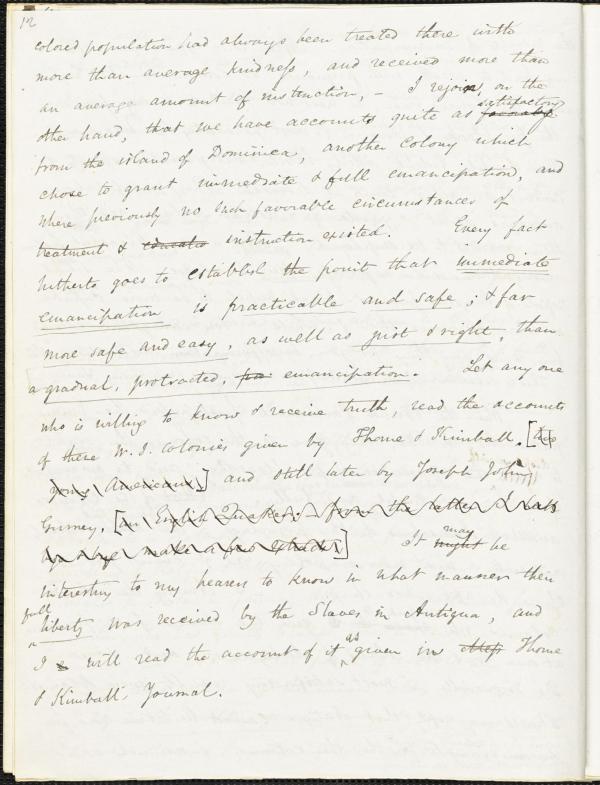 12
colored population had always been treated there with
more than average kindness, and received more than
an average amount of instruction, – I rejoin, on the
other hand, that we have accounts quite as favorable satisfactory
from the island of Dominica, another Colony which
chose to grant immediate & full emancipation, and
where previously no such favorable circumstances of
treatment & education instruction existed. Every fact
hitherto goes to establish the point that immediate
emancipation is practicable and safe; & far
more safe and easy, as well as just & right, than
a gradual, protracted, emancipation. Let any one
who is willing to know & receive truth, read the accounts
of these W. I. colonies given by Thome & Kimball. [two
young Americans,] and still later by Joseph John
Gurney, [an English Quaker. – from the latter I shall
make a few extracts] It might may be
interesting to my hearers to know in what manner then
full liberty was received by the Slaves in Antigua, and
I will read the account of it as given in Thome
& Kimball's Journal.